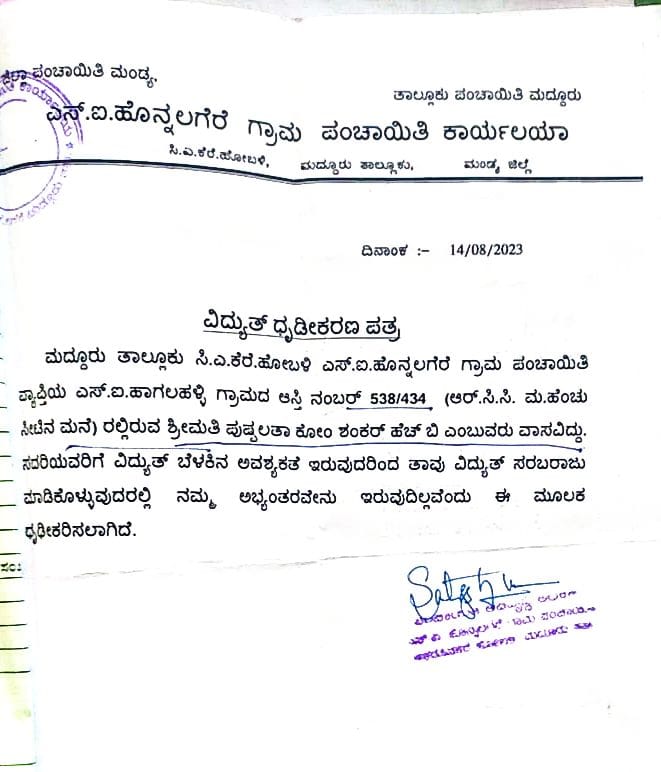 ಜಿಲ್ಲಾ ಪಂಚಾಯಿತಿ ಮಂಡ್ಯ,
ತಾಲ್ಲೂಕು ಪಂಚಾಯಿತಿ ಮದ್ದೂರು
ಎಸ್.ಐ.ಹೊನ್ನಲಗೆರೆ ಗ್ರಾಮ ಪಂಚಾಯಿತಿ ಕಾರ್ಯಲಯಾ
ಸಿ.ಎ.ಕೆರೆ.ಹೋಬಳಿ, ಮದ್ದೂರು ತಾಲ್ಲೂಕು, ಮಂಡ್ಯ ಜಿಲ್ಲೆ
ದಿನಾಂಕ :- 14/08/2023
ವಿದ್ಯುತ್ ಧೃಡೀಕರಣ ಪತ್ರ
ಮದ್ದೂರು ತಾಲ್ಲೂಕು ಸಿ.ಎ.ಕೆರೆ.ಹೋಬಳಿ ಎಸ್.ಐ.ಹೊನ್ನಲಗೆರೆ ಗ್ರಾಮ ಪಂಚಾಯಿತಿ
ವ್ಯಾಪ್ತಿಯ ಎಸ್.ಐ.ಹಾಗಲಹಳ್ಳಿ ಗ್ರಾಮದ ಆಸ್ತಿ ನಂಬರ್ 538/434 (ಆರ್.ಸಿ.ಸಿ. ಮ.ಹೆಂಚು
ಸೀಟಿನ ಮನೆ) ರಲ್ಲಿರುವ ಶ್ರೀಮತಿ ಪುಷ್ಪಲತಾ ಕೋಂ ಶಂಕರ್ ಹೆಚ್ ಬಿ ಎಂಬುವರು ವಾಸವಿದ್ದು.
ಸದರಿಯವರಿಗೆ ವಿದ್ಯುತ್ ಬೆಳಕಿನ ಅವಶ್ಯಕತೆ ಇರುವುದರಿಂದ ತಾವು ವಿದ್ಯುತ್ ಸರಬರಾಜು
ಮಾಡಿಕೊಳ್ಳುವುದರಲ್ಲಿ ನಮ್ಮ ಅಭ್ಯಂತರವೇನು ಇರುವುದಿಲ್ಲವೆಂದು ಈ ಮೂಲಕ
ಧೃಢೀಕರಿಸಲಾಗಿದೆ.